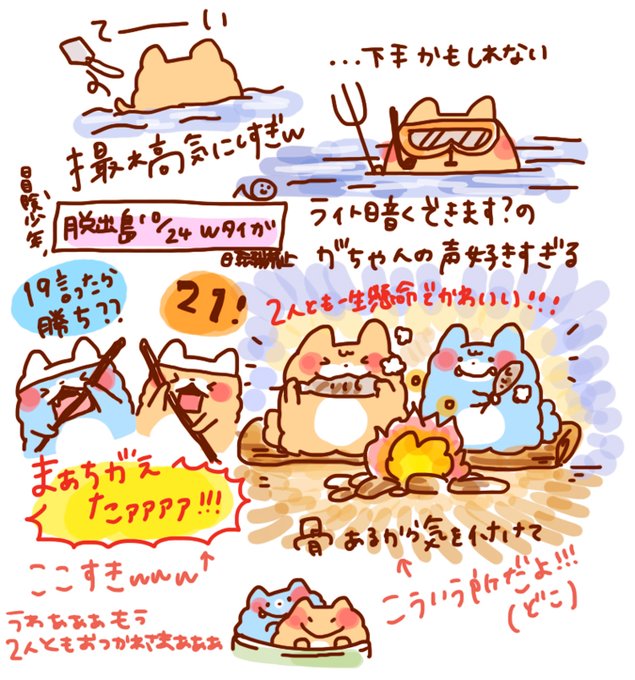 てーい
...下手かもしれない
撮れ高気にしすぎw
冒険少年、
脱出島10/24 Wタイガ
ライト暗くできます?の
がちゃんの声好きすぎる
19言ったら
勝ち??
21!
2人とも一生懸命でかわいい!!!
まぁちがえ
たァァァァ!!!
骨あるから気を付けて
ここすきwww
こういう所だよ!!!
(どこ)
うわぁぁぁもう
2人ともおつかれさまぁぁぁ